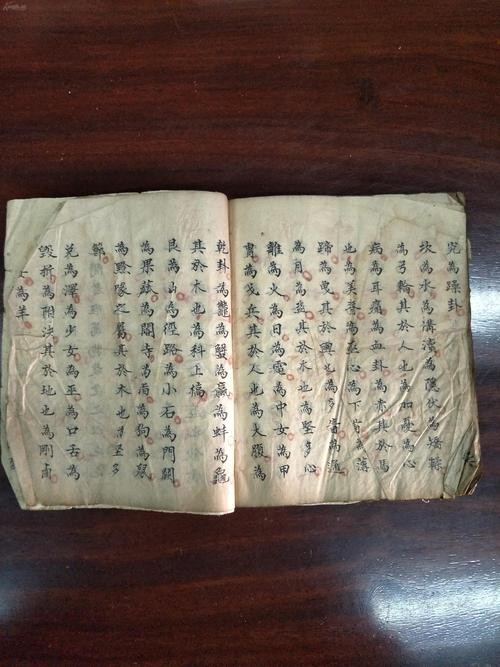 究為躁卦
坎為水為溝瀆為隱伏為矯輮
為弓輪其於人也為加憂為心
病為耳痛為血卦為赤其於馬
也為美脊為亟心為下首為薄
蹄為曳其於輿也為多眚為通
為月為盜其於木也為堅多心
離為火為日為電為中女為甲
冑為戈兵其於人也為大腹為
乾卦為鼈為蟹為蠃為蚌為龜
其於木也為科上槁
艮為山為徑路為小石為門闕
為果蓏為閽寺為指為狗為鼠
為黔喙之屬其於木也為堅多
節
兌為澤為少女為巫為口舌為
毀折為附決其於地也為剛鹵
為羊